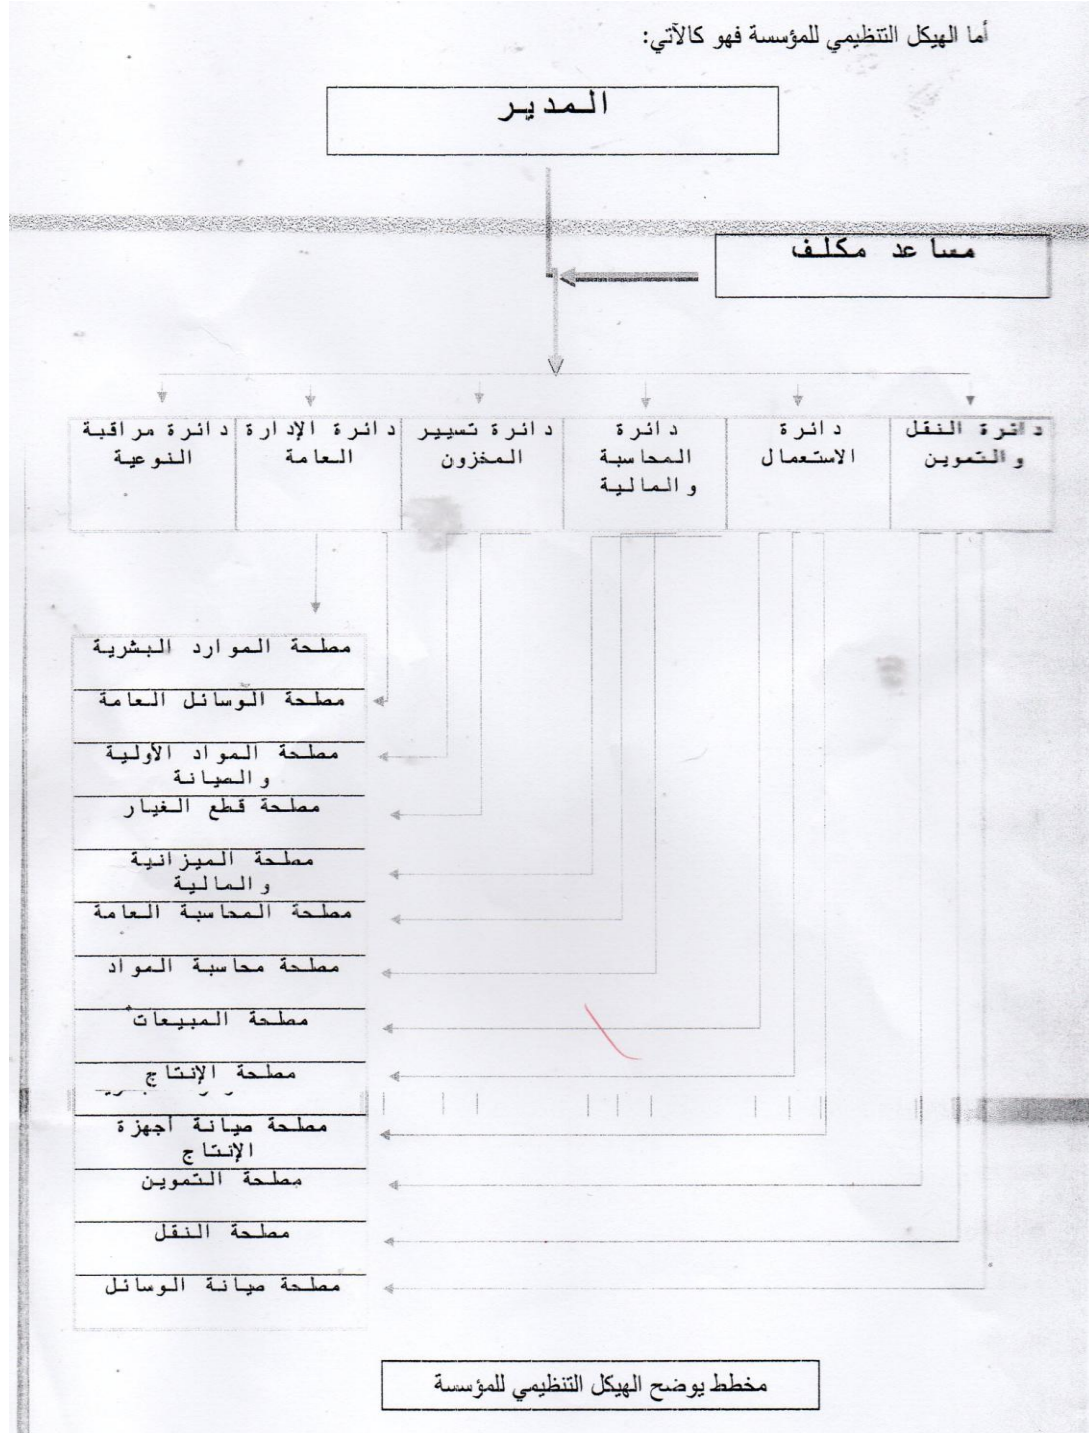 أما الهيكل التنظيمي للمؤسسة فهو كالآتي:
المدير
مساعد مكلف
دائرة النقل
والتموين
دائرة
الاستعمال
دائرة
المحاسبة
والمالية
دائرة تسيير
المخزون
دائرة الإدارة
العامة
دائرة مراقبة
النوعية
مصلحة الموارد البشرية
مصلحة الوسائل العامة
مصلحة المواد الأولية
والصيانة
مصلحة قطع الغيار
مصلحة الميزانية
والمالية
مصلحة المحاسبة العامة
مصلحة محاسبة المواد
مصلحة المبيعات
مصلحة الإنتاج
مصلحة صيانة أجهزة
الإنتاج
مصلحة التموين
مصلحة النقل
مصلحة صيانة الوسائل
مخطط يوضح الهيكل التنظيمي للمؤسسة